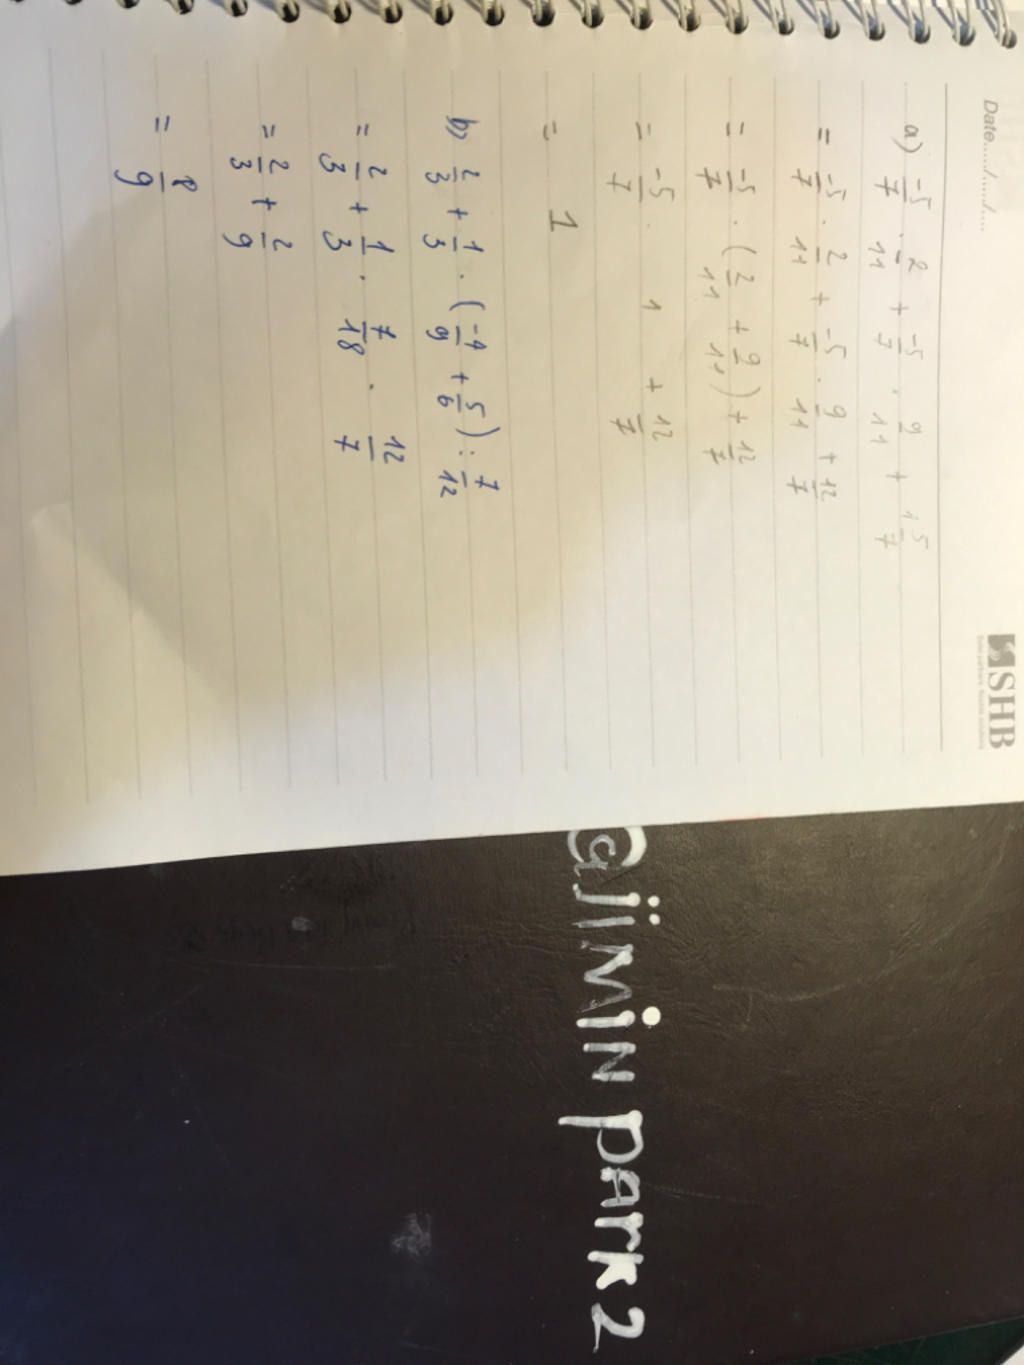 Date...../...../.....
SHB
a) -5/7 . 2/11 + -5/7 . 9/11 + 1 5/7
= -5/7 . 2/11 + -5/7 . 9/11 + 12/7
= -5/7 . (2/11 + 9/11) + 12/7
= -5/7 . 1 + 12/7
= 1
b) 2/3 + 1/3 . (-4/9 + 5/6) : 7/12
= 2/3 + 1/3 . 7/18 . 12/7
= 2/3 + 2/9
= 8/9
@jiMiN pArk 2